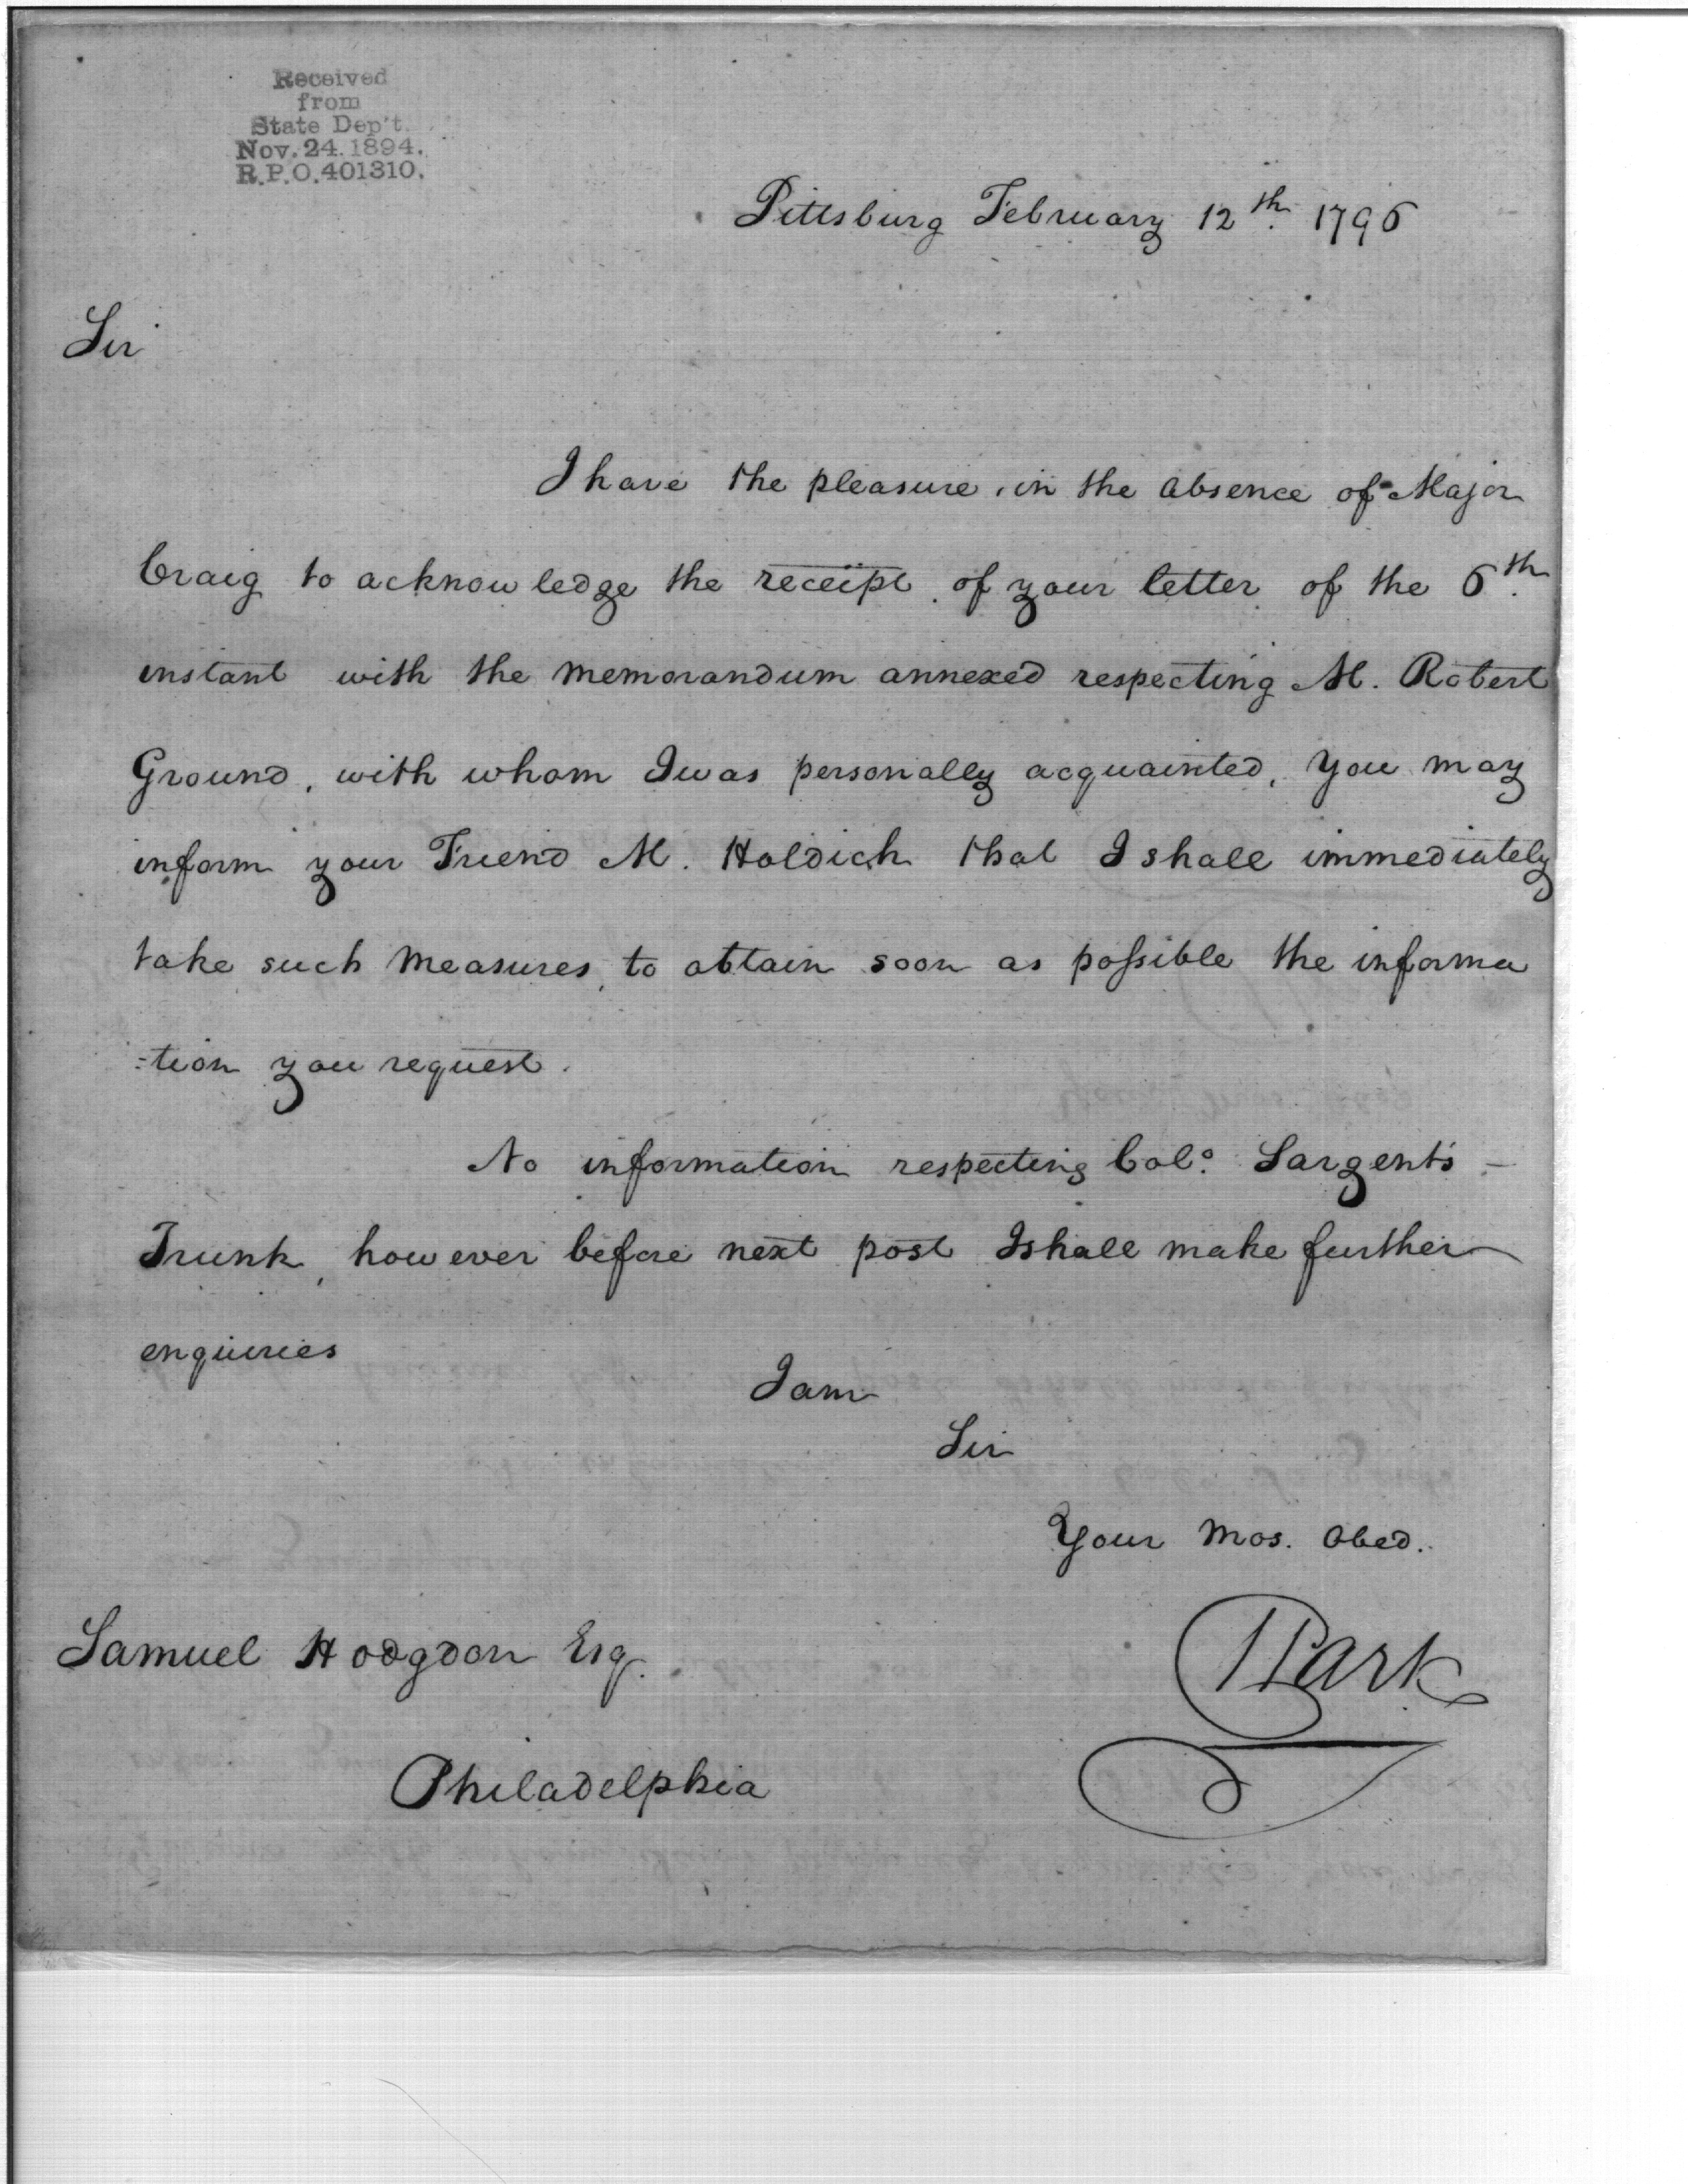 Received
from
State Dep't.
Nov. 24. 1894.
R.P.O. 401310.
Pittsburg February 12th. 1796
Sir
I have the pleasure, in the absence of Major
Craig to acknowledge the receipt of your letter of the 6th.
instant with the memorandum annexed respecting M. Robert
Ground, with whom I was personally acquainted, you may
inform your Friend M. Holdich that I shall immediately
take such measures, to obtain soon as possible the informa
=tion you request.
No information respecting Colo. Sargent's –
Trunk, however before next post I shall make further
enquiries
I am
Sir
Your Mos. Obed.
Samuel Hodgdon Esq.
Philadelphia